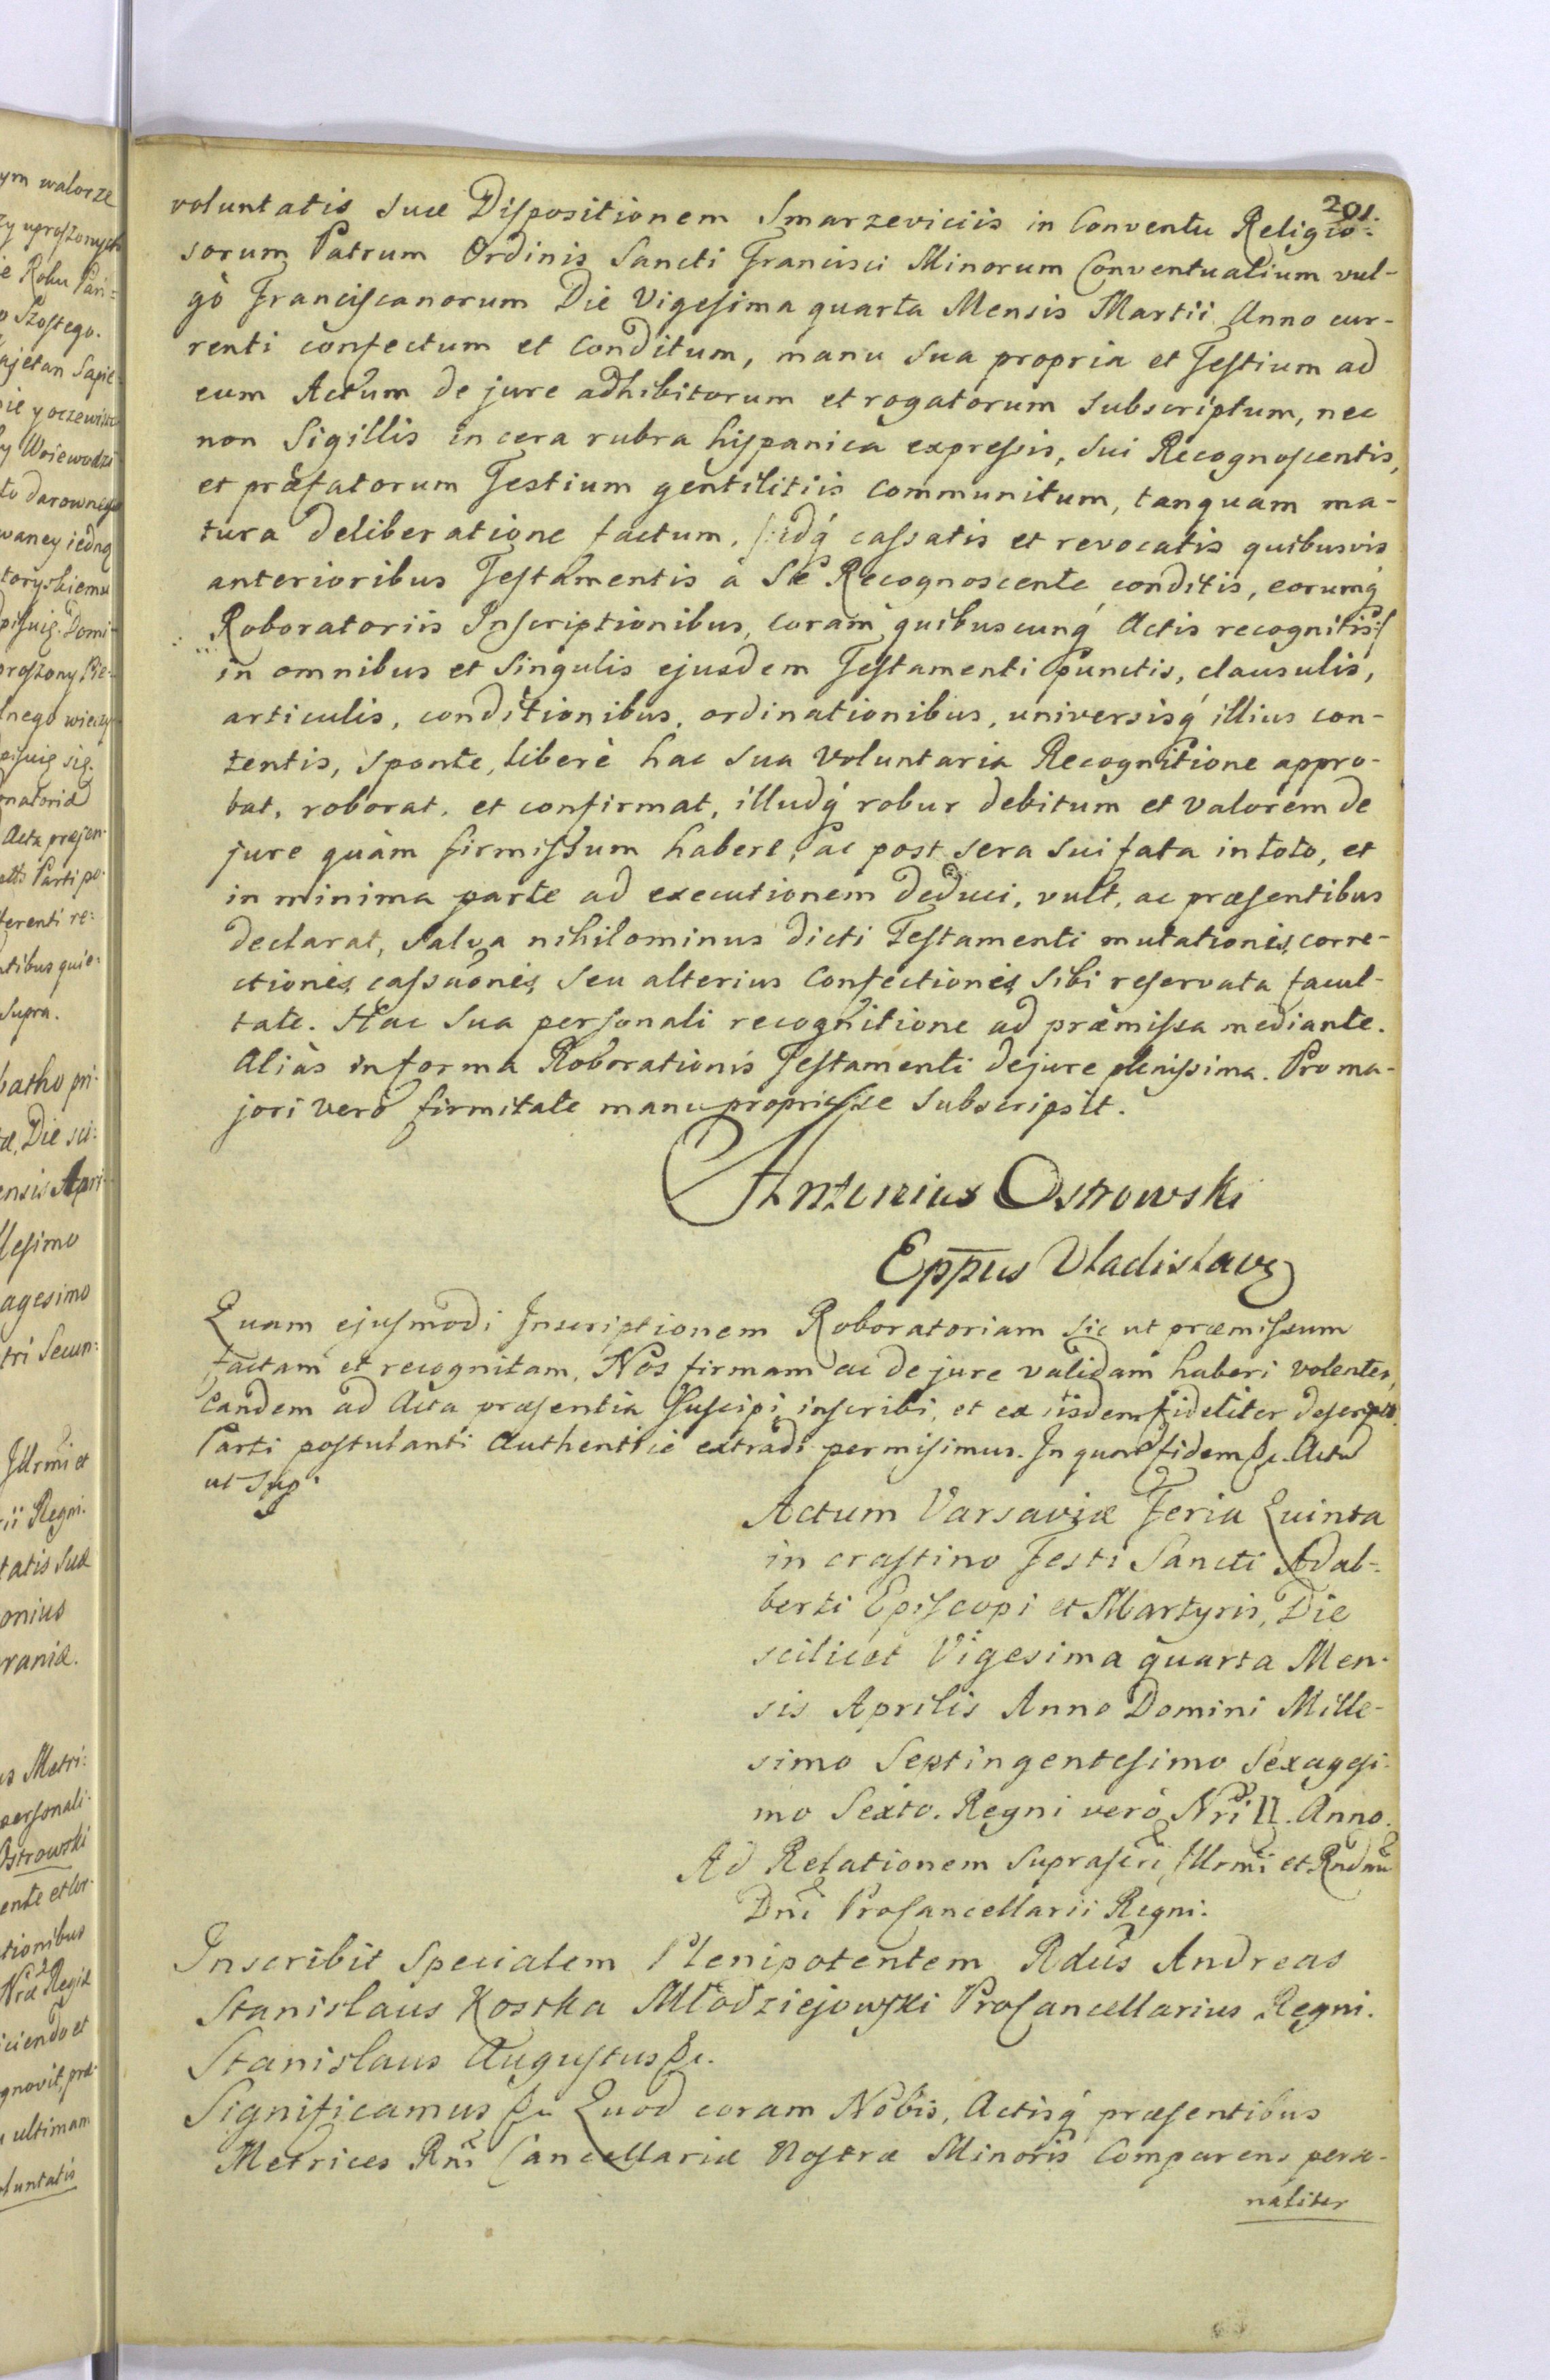 201.
voluntatis suæ Dispositionem Smarzeviciis in Conventu Religio-
sorum Patrum Ordinis Sancti Francisci Minorum Conventualium vul-
gò Franciscanorum Die Vigesima quarta Mensis Martii Anno cur-
renti confectum et conditum, manu sua propria et Testium ad
eum Actum de jure adhibitorum et rogatorum subscriptum, nec
non Sigillis in cera rubra hispanica expressis, sui Recognoscentis,
et præfatorum Testium gentilitiis communitum, tanquam ma-
tura deliberatione factum, /:idq́ cassatis et revocatis quibusvis
anterioribus Testamentis à Se Recognoscente conditis, eorumq́
Roboratoriis Inscriptionibus, coram quibuscunq́ Actis recognitis:/
in omnibus et singulis ejusdem Testamenti punctis, clausulis,
articulis, conditionibus, ordinationibus, universisq́ illius con-
tentis, sponte, liberè hac sua voluntaria Recognitione appro-
bat, roborat, et confirmat, illudq́ robur debitum et valorem de
jure quàm firmissum habere, ac post sera sui fata in toto, et
in minima parte ad executionem deduci, vult, ac præsentibus
declarat, salva nihilominus dicti Testamenti mutationis, corre-
ctionis, cassãonis, seu alterius Confectionis sibi reservata facul-
tate. Hac sua personali recognitione ad præmissa mediante.
Aliàs in forma Roborationis Testamenti de jure plenissima. Pro ma-
jori verò firmitate manu propria se subscripsit.
Antonius Ostrowski
Eppus Vladislavs
Quam ejusmodi Inscriptionem Roboratoriam sic ut præmissum
factam et recognitam, Nos firmam ac de jure validam haberi volentes,
eandem ad Acta præsentia suscipi, inscribi, et ex iisdem fideliter descriptã
Parti postulanti authentice extradi permisimus. In quorũ fidem &c. Actũ
ut sup.
Actum Varsaviæ Feria Quinta
in crastino Festi Sancti Adal-
berti Episcopi et Martyris, Die
scilicet Vigesima quarta Men-
sis Aprilis Anno Domini Mille-
simo Septingentesimo Sexagesi-
mo Sexto. Regni verò Nri II. Anno.
Ad Relationem suprascri Illrmi et Rndmi
Dni ProCancellarii Regni.
Inscribit specialem Plenipotentem Rdus Andreas
Stanislaus Kostka Młodziejowski ProCancellarius Regni.
Stanislaus Augustus &c.
Significamus &c Quod coram Nobis, Actisq́ præsentibus
Metrices Rni Cancellariæ Nostræ Minoris Comparens perso-
naliter